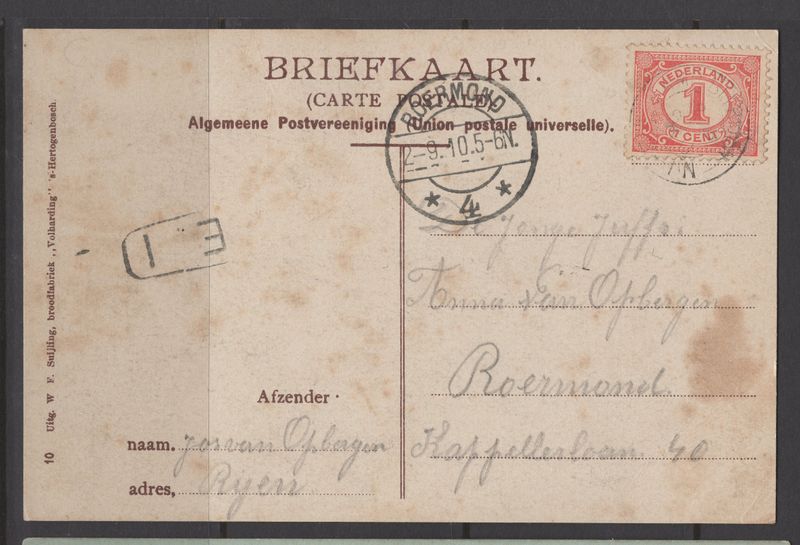 BRIEFKAART.
(CARTE POSTALE)
Algemeene Postvereeniging (Union postale universelle).
NEDERLAND
1
1 CENT
ROERMOND
2-9.10.5-6N.
* 4 *
E I
De Jonge Juffr.
Anna van Opbergen
Roermond
Kappellerlaan 40
Afzender.
naam. Jos van Opbergen
adres, Ryen
10 Uitg. W F. Suijling, broodfabriek „Volharding" 's-Hertogenbosch.